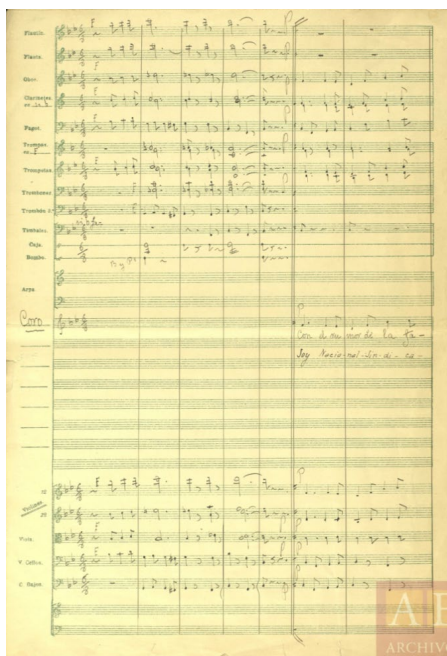 Flautín.
Flauta.
Oboe.
Clarinetes
en
Fagot.
Trompas.
en F
Trompetas.
Trombones
Trombón 3º
Timbales.
Caja.
Bombo.
Arpa
Coro
Con el ru mor de la
Soy Nacio-nal Sin
Violines
1º
2º
Viola.
V. Cellos.
C. Bajos.
AE
ARCHIVO